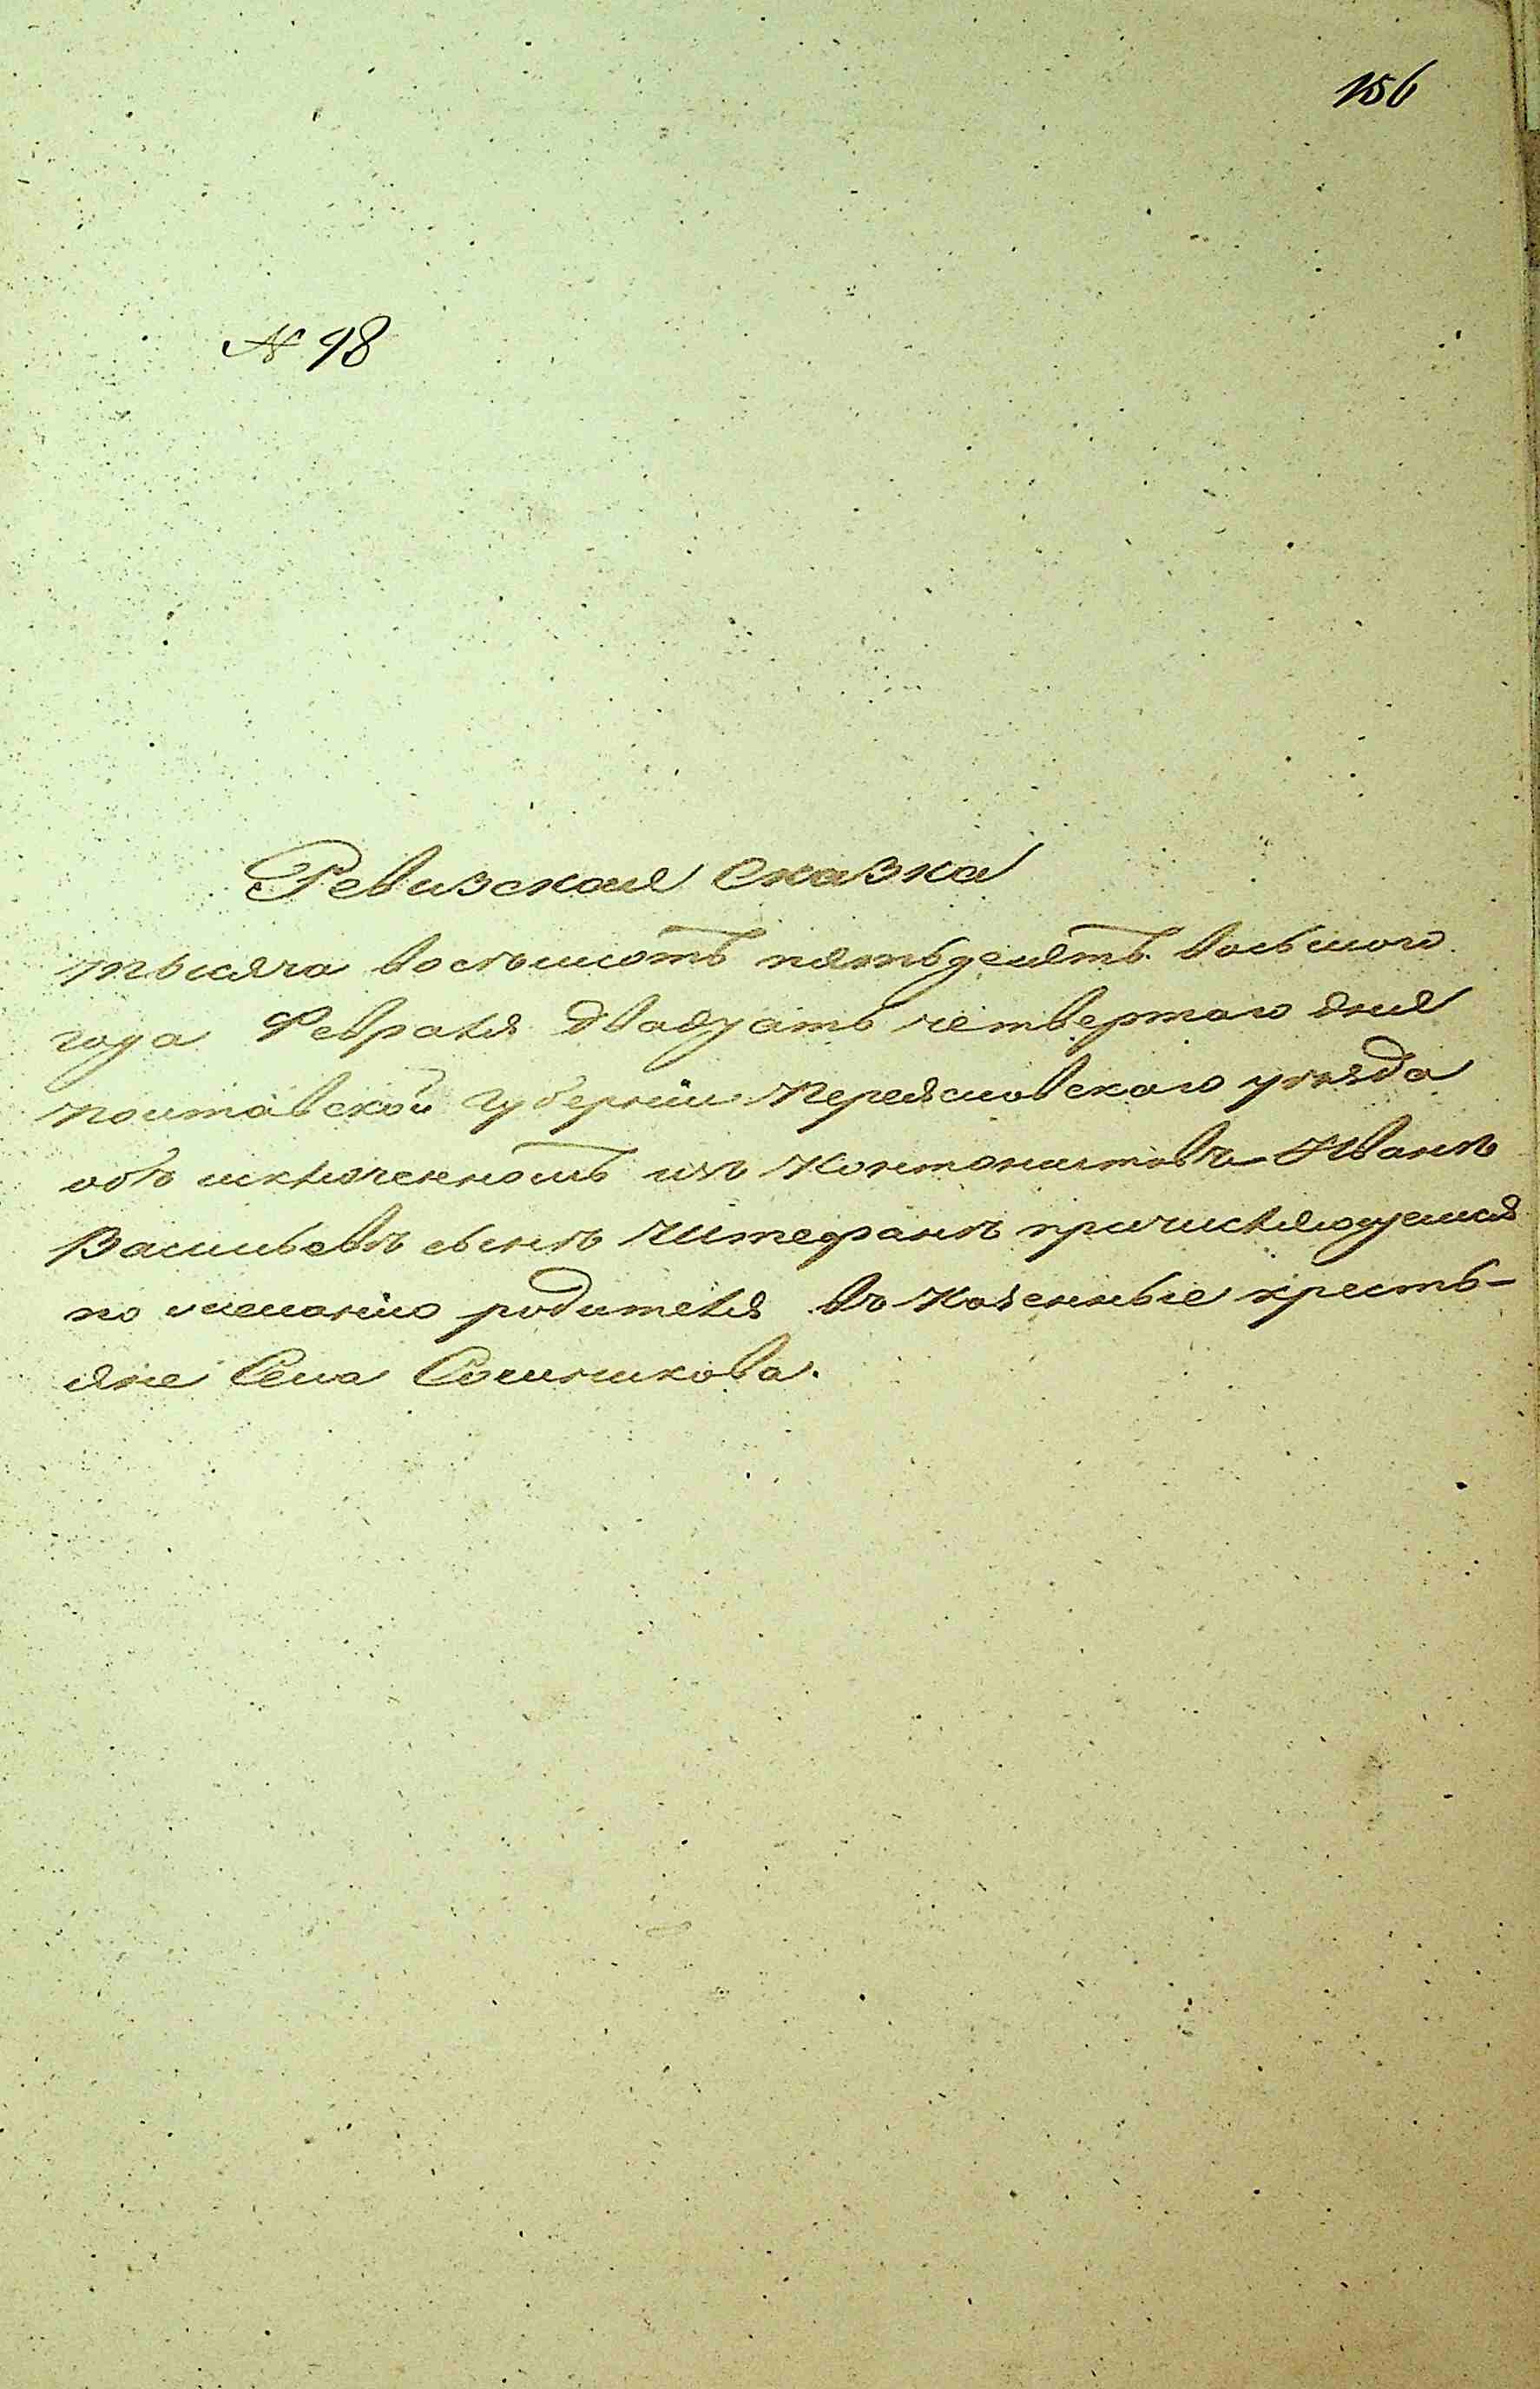 156
№ 98
Ревизская Сказка
тысяча восемьсотъ пятьдесятъ восьмого
года Февраля двадцать четвертаго дня
Полтавской губерніи Переясловскаго уѣзда
объ исключенномъ изъ Кантонистовъ Иванѣ
Васильевѣ сынѣ Штефанѣ причисляющемся
по желанію родителя въ Казенные кресть-
яне Села Сошникова.